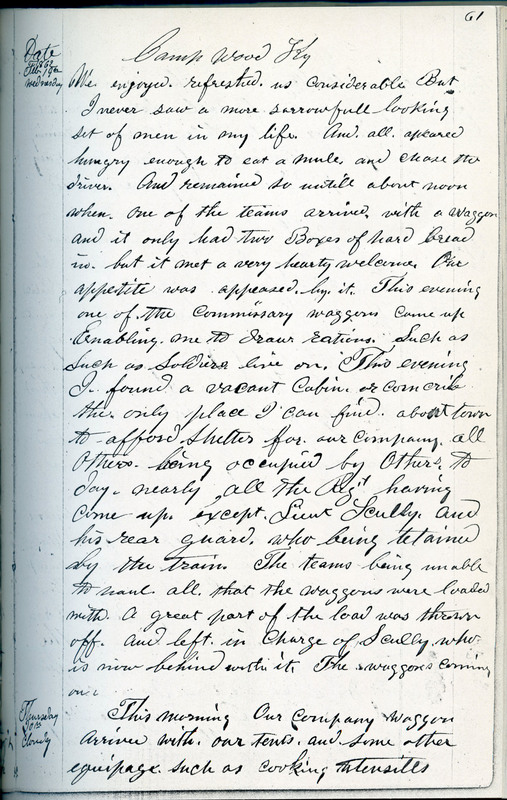 61
Camp Wood Ky
Date
1862
Feb. 19th
Wednesday
We enjoyed. refreshed. us considerable But
I never saw a more sorrowfull looking
set of men in my life. And. all. apeared
hungry enough to eat a mule and chase the
driver. And remained so untill about noon
when. one of the teams arrived. with a waggon
and it only had two Boxes of hard bread
in. but it met a very hearty welcome. Our
appetite was appeased. by. it. This evening
one of. the Commissary waggons came up
Enabling. me to draw rations. Such as
Such as Soldiers live on. This evening
I. found a vacant Cabin. or corn crib
the. only place I can find. about town
to afford. Shelter for. our company. all
Others. being occupied by Others. to
day. nearly all the Regt having
come up. except. Lieut Scully. and
his rear guard. who being detained
by the train. The teams being unable
to haul all. that the waggons were loaded
with. A great part of the load was thrown
off. and left. in Charge of. Scully. who.
is now behind with it. The waggons coming
on.
Thursday
20th
Cloudy
This morning Our company waggon
arrived with. our tents. and some other
equipage. such as cooking utensills